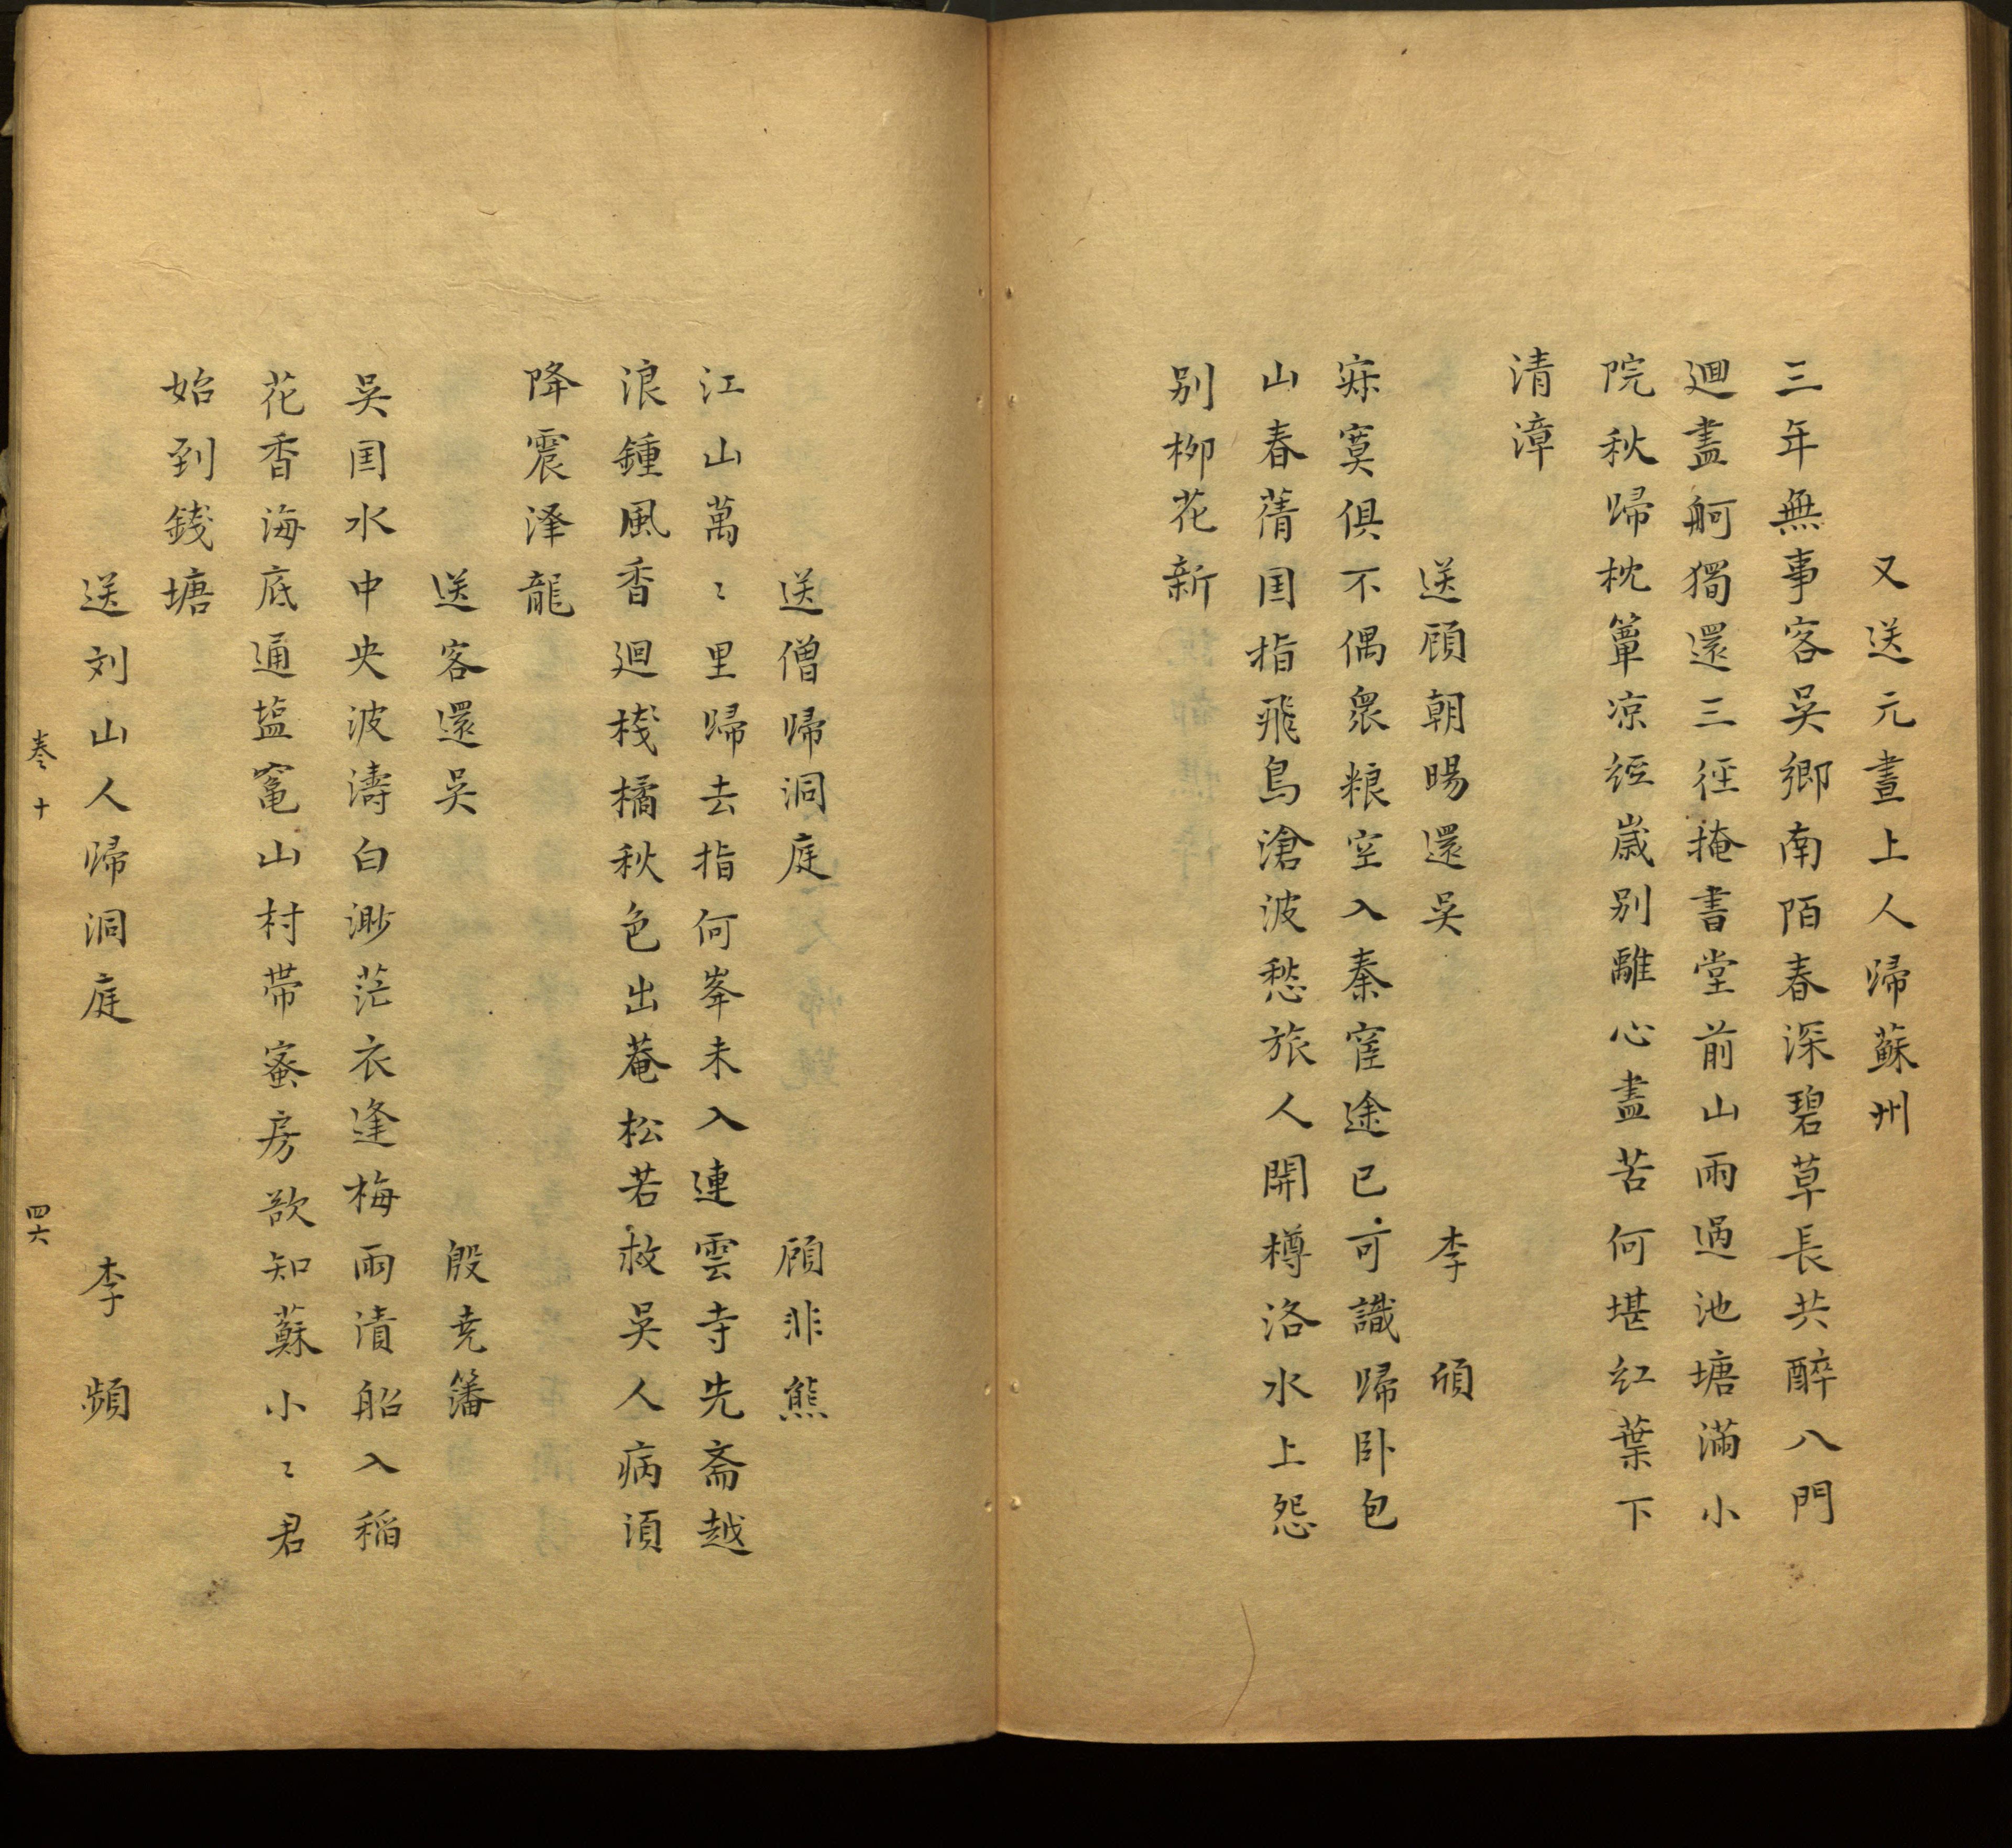 又送元晝上人歸蘇州
三年無事客吳鄉南陌春深碧草長共醉八門
迴畫舸獨還三徑掩書堂前山雨過池塘滿小
院秋歸枕簟凉經歲别離心盡苦何堪紅葉下
清漳
送顧朝暘還吳 李頎
寂寞俱不偶褁粮空入秦宦途已可識歸卧包
山春蒨囯指飛鳥滄波愁旅人開樽洛水上怨
别栁花新
送僧歸洞庭 顧非熊
江山萬〻里歸去指何峯未入連雲寺先斋越
浪鍾風香迴棧橘秋色出菴松若救吳人病湏
降震泽龍
送客還吳 殷尭籓
吳囯水中央波濤白渺茫衣逢梅雨漬船入稲
花香海底通塩竃山村帯蜜房欲知蘇小〻君
始到錢塘
送刘山人歸洞庭 李頻
卷十 四六